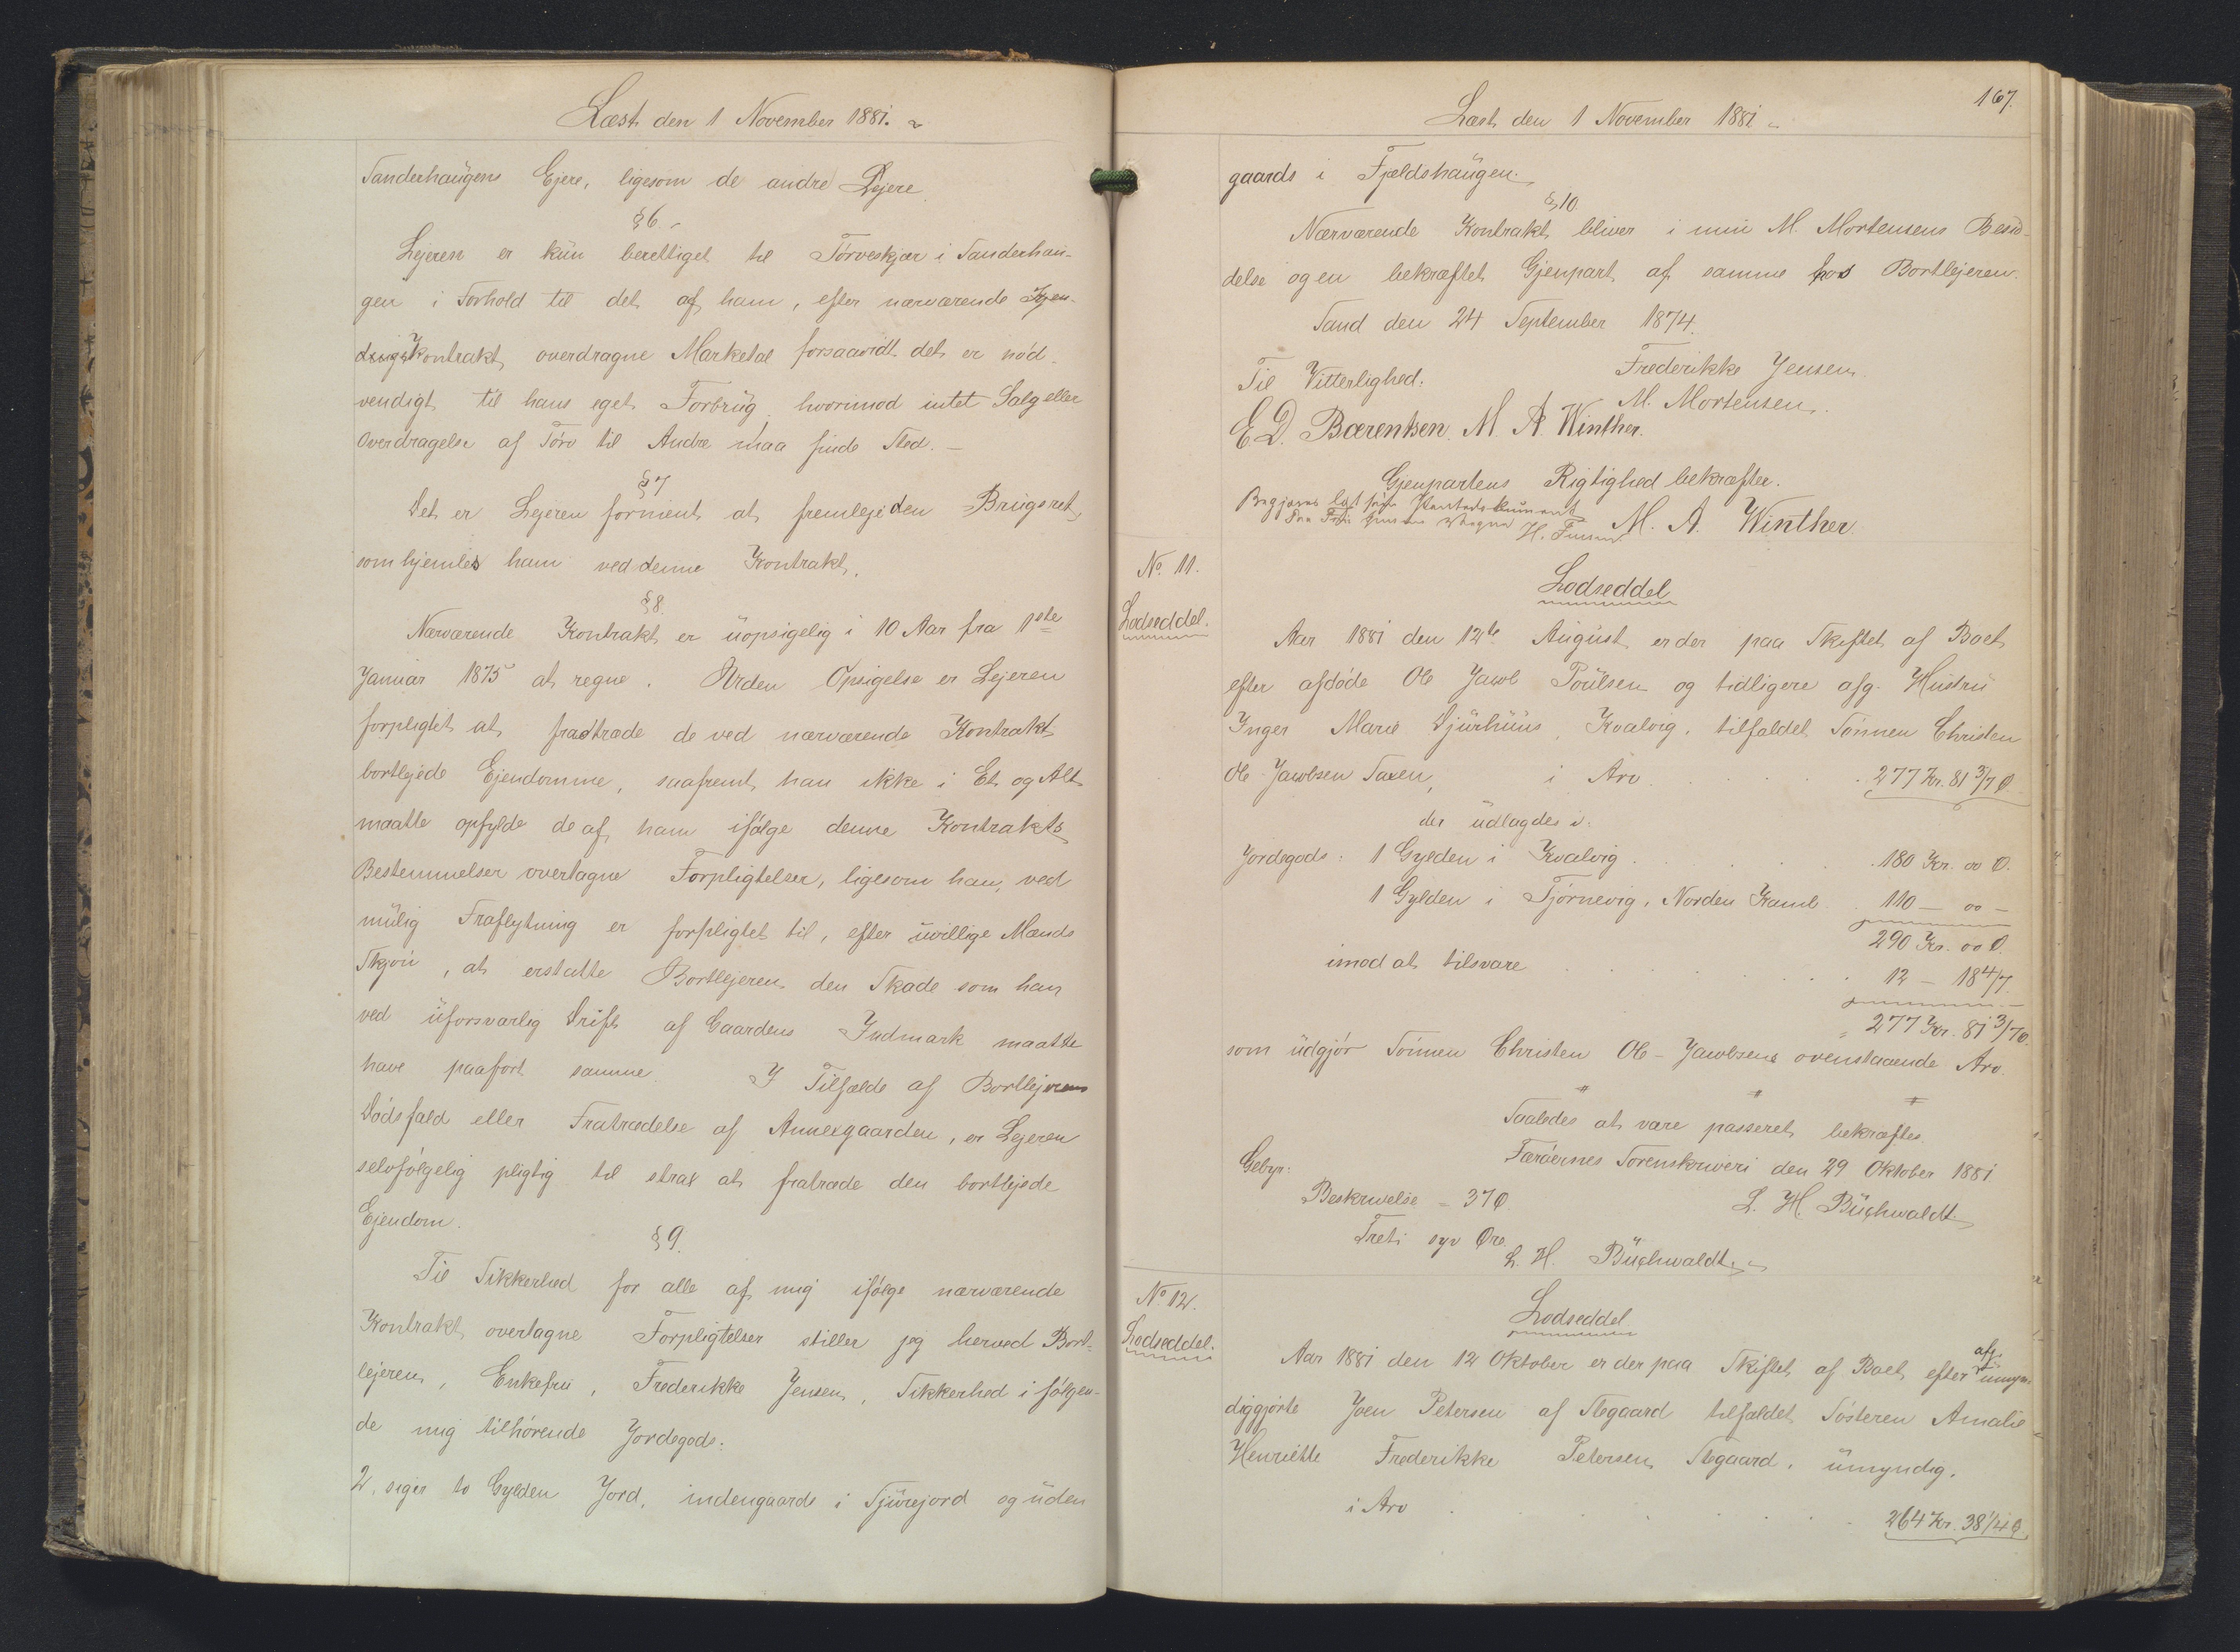 Læst den 1 November 1881.
Sanderhaugens Ejere, ligesom de andre Lejere
§ 6.
Lejeren er kun berettiget til Tørveskjær i Sanderhau-
gen i Forhold til det af ham, efter nærværende
Kontrakt overdragne Marketal forsaavidt det er nød-
vendigt til hans eget Forbrug, hvorimod intet Salg eller
Overdragelse af Tørv til Andre maa finde Sted.
§ 7
Det er Lejeren forment at fremleje den Brugsret,
som hjemles ham ved denne Kontrakt.
§ 8.
Nærværende Kontrakt er uopsigelig i 10 Aar fra 1ste
Januar 1875 at regne. Uden Opsigelse er Lejeren
forpligtet at fratræde de ved nærværende Kontrakt
bortlejede Ejendomme, saafremt han ikke i Et og Alt
maatte opfylde de af ham ifølge denne Kontrakts
Bestemmelser overtagne Forpligtelser, ligesom han, ved
mulig Fraflytning er forpligtet til, efter uvillige Mænds
Skjøn, at erstatte Bortlejeren den Skade som han
ved uforsvarlig Drift af Gaardens Indmark maatte
have paaført samme. I Tilfælde af Bortlejerens
Dødsfald eller Fratrædelse af Annexgaarden, er Lejeren
selvfølgelig pligtig til strax at fratræde den bortlejede
Ejendom.
§ 9.
Til Sikkerhed for alle af mig ifølge nærværende
Kontrakt overtagne Forpligtelser stiller jeg herved Bort-
lejeren, Enkefru, Frederikke Jensen, Sikkerhed i følgen-
de mig tilhørende Jordegods:
2, siger to Gylden Jord, indengaards i Tjürejord og uden
167.
Læst den 1 November 1881
gaards i Fjeldshaugen.
§ 10.
Nærværende Kontrakt bliver i min M. Mortensens Besid-
delse og en bekræftet Gjenpart af samme hos Bortlejeren.
Sand den 24 September 1874.
Frederikke Jensen.
Til Vitterlighed:
M. Mortensen.
E. D. Bærentsen. M. A. Winther.
Gjenpartens Rigtighed bekræfter.
Begjæres læst som Pantedokument
M. A. Winther.
No. 11.
Lodseddel.
Lodseddel
Aar 1881 den 12te August er der paa Skiftet af Boet
efter afdøde Ole Jacob Poulsen og tidligere afg. Hustru
Inger Marie Djurhuus, Kvalvig, tilfaldet Sønnen Christen
Ole Jacobsen Saxen, i Arv . 277 Kr. 81 3/7 Ø
der udlagdes i:
Jordegods: 1 Gylden i Kvalvig . 180 Kr. 00 Ø.
1 Gylden i Tjørnevig, Norden Kaml. 110 — 00 —
290 Kr. 00 Ø.
imod at tilsvare . 12 — 18 4/7.
277 Kr. 81 3/7 Ø.
som udgjør Sønnen Christen Ole Jacobsens ovenstaaende Arv.
Saaledes at være passeret bekræftes.
Færøernes Sorenskriveri den 29 Oktober 1881
Gebyr:
L. H. Buchwaldt.
Beskrivelse = 37 Ø
Treti syv Øre.
L. H. Buchwaldt.
No. 12.
Lodseddel.
Lodseddel
Aar 1881 den 12 Oktober er der paa Skiftet af Boet efter afg. umyn-
diggjorte Joen Petersen af Stegaard tilfaldet Søsteren Amalie
Henriette Frederikke Petersen, Stegaard, umyndig,
i Arv . 264 Kr. 38 1/4 Ø.